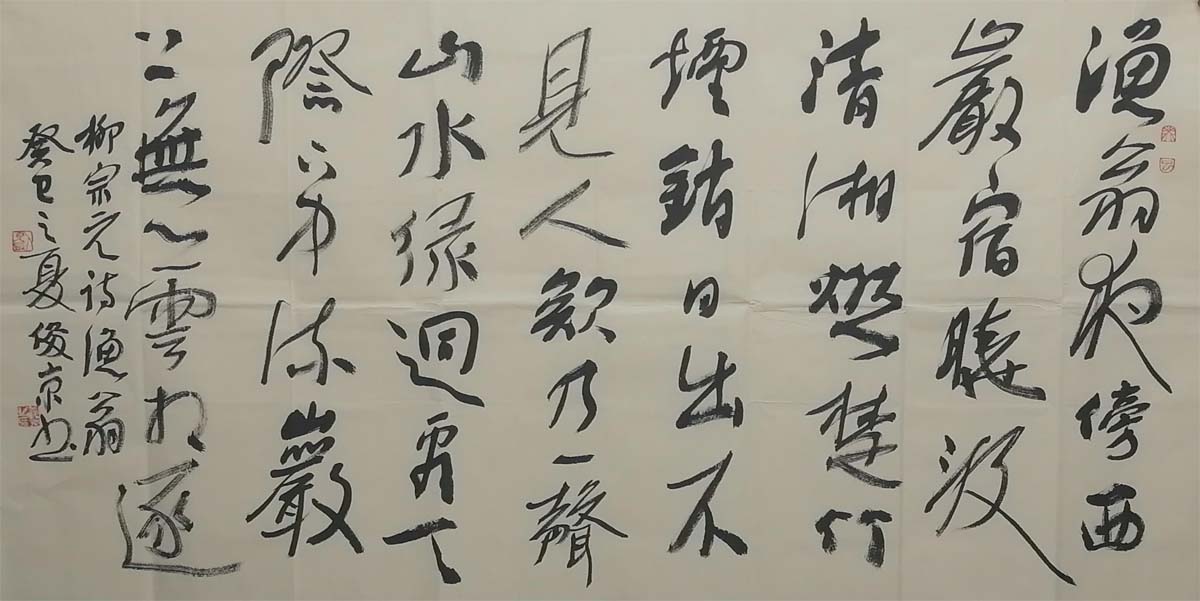 漁翁夜傍西
巖宿曉汲
清湘燃楚竹
煙銷日出不
見人欸乃一聲
山水绿迴看天
際下中流巖
上無心雲相逐
柳宗元诗漁翁
癸巳之夏俊京书